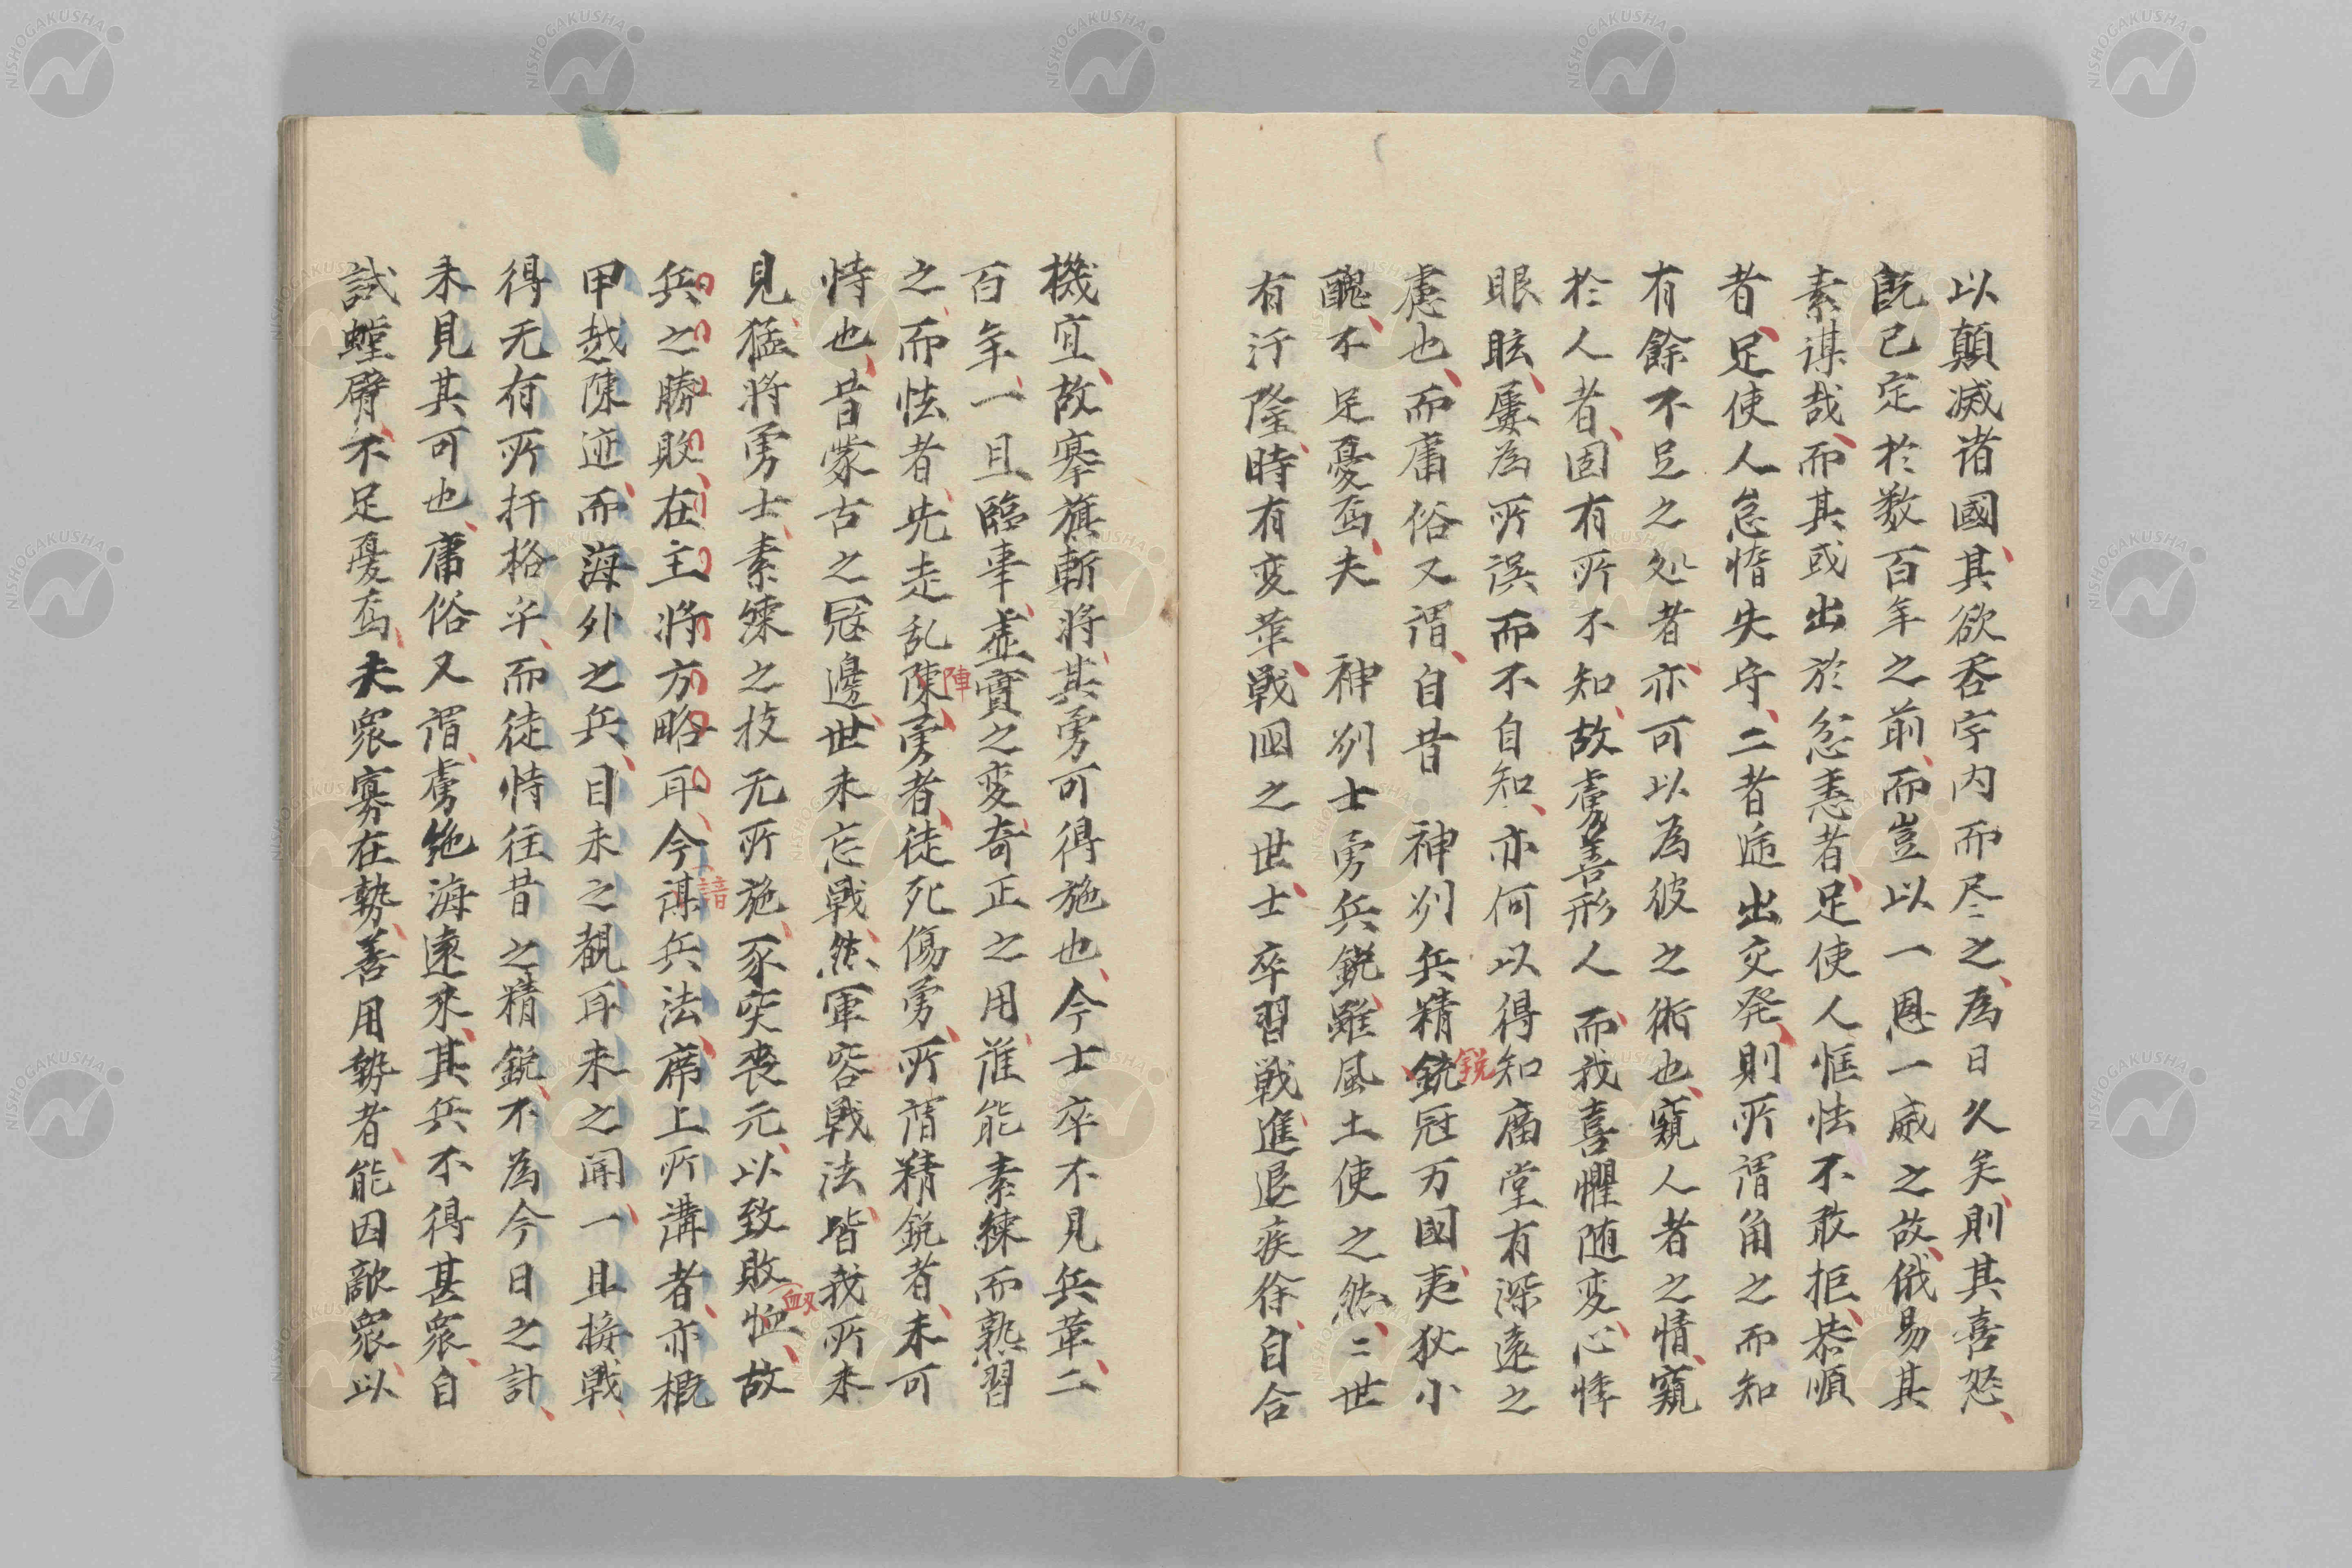 以顛滅諸國其欲呑宇内而尽之為日久矣則其喜怒
既已定於数百年之前而豈以一恩一威之故俄易其
素謀哉而其或出於忿恚者足使人恇怯不敢拒恭順
者足使人怠惰失守二者迭出交発則所謂角之而知
有餘不足之処者亦可以為彼之術也窺人者之情窺
於人者固有所不知故虜善形人而我喜懼随変心悸
眼眩屢為所誤而不自知亦何以得知廟堂有深遠之
慮也而庸俗又謂自昔神州兵精銃冠万國夷狄小
鋭
醜不足憂焉夫神州士勇兵鋭雖風土使之然二世
有汙隆時有変革戦国之世士卒習戦進退疾徐自合
機宜故搴旗斬将其勇可得施也今士卒不見兵革二
百年一旦臨事虚實之変奇正之用誰能素練而熟習
之而怯者先走乱陳勇者徒死傷勇所謂精鋭者未可
陣
恃也昔蒙古之冦邊世未忘戦然軍容戦法皆我所未
見猛将勇士素練之技无所施豕突喪元以致敗恤故
衂
兵之勝敗在主将方略耳今謀兵法席上所講者亦概
諳
甲越陳迹而海外之兵目未之覩耳未之聞一旦接戦
得无有所扞格乎而徒恃往昔之精鋭不為今日之計
未見其可也庸俗又謂虜絶海遠来其兵不得甚衆自
試螳臂不足憂焉夫衆寡在勢善用勢者能因敵衆以
NISHOGAKUSHA